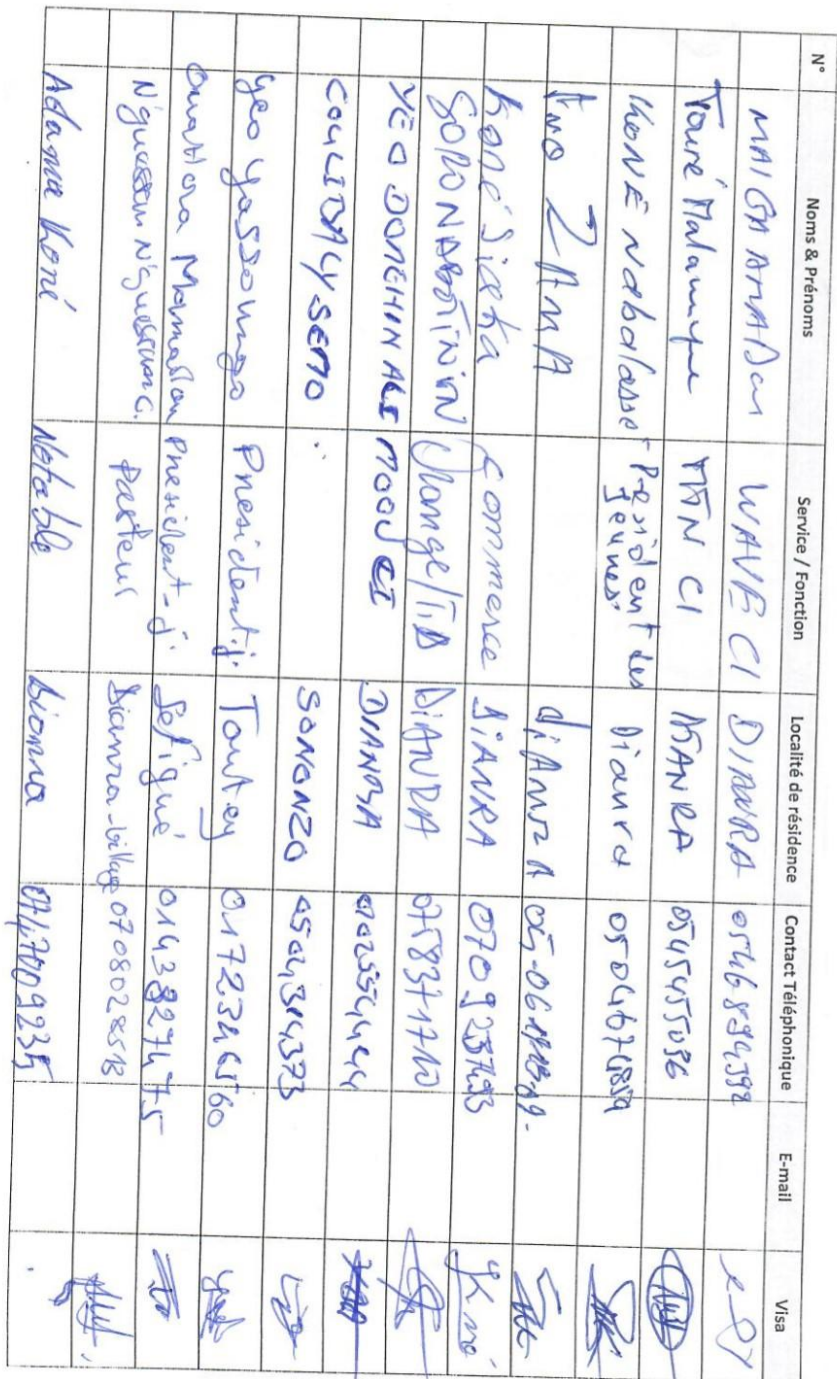 N° Noms & Prénoms Service / Fonction Localité de résidence Contact Téléphonique E-mail Visa
MAIGA AMADou WAVE CI DIANRA 0546894398
Touré MTN CI DIANRA 0545455096
KONE Nabalasse Président des jeunes Dianra
ZAMA diAnRA
Koné Siaka Commerce DIANRA
SORO NABOTININ Orange/TB DIANRA 0758371710
YEO DONEHIN ALI MOOV CI DIANRA
COULIBALY SEMO " SONONZO 0504314373
Yeo Gassoungo President j. Toutey 0172346560
Ouattara Mamadou President-j Sefigué 0143827475
N'guessan N'guessan C. Pasteur Dianra-village 0708028518
Adama Koné Notable Dianra